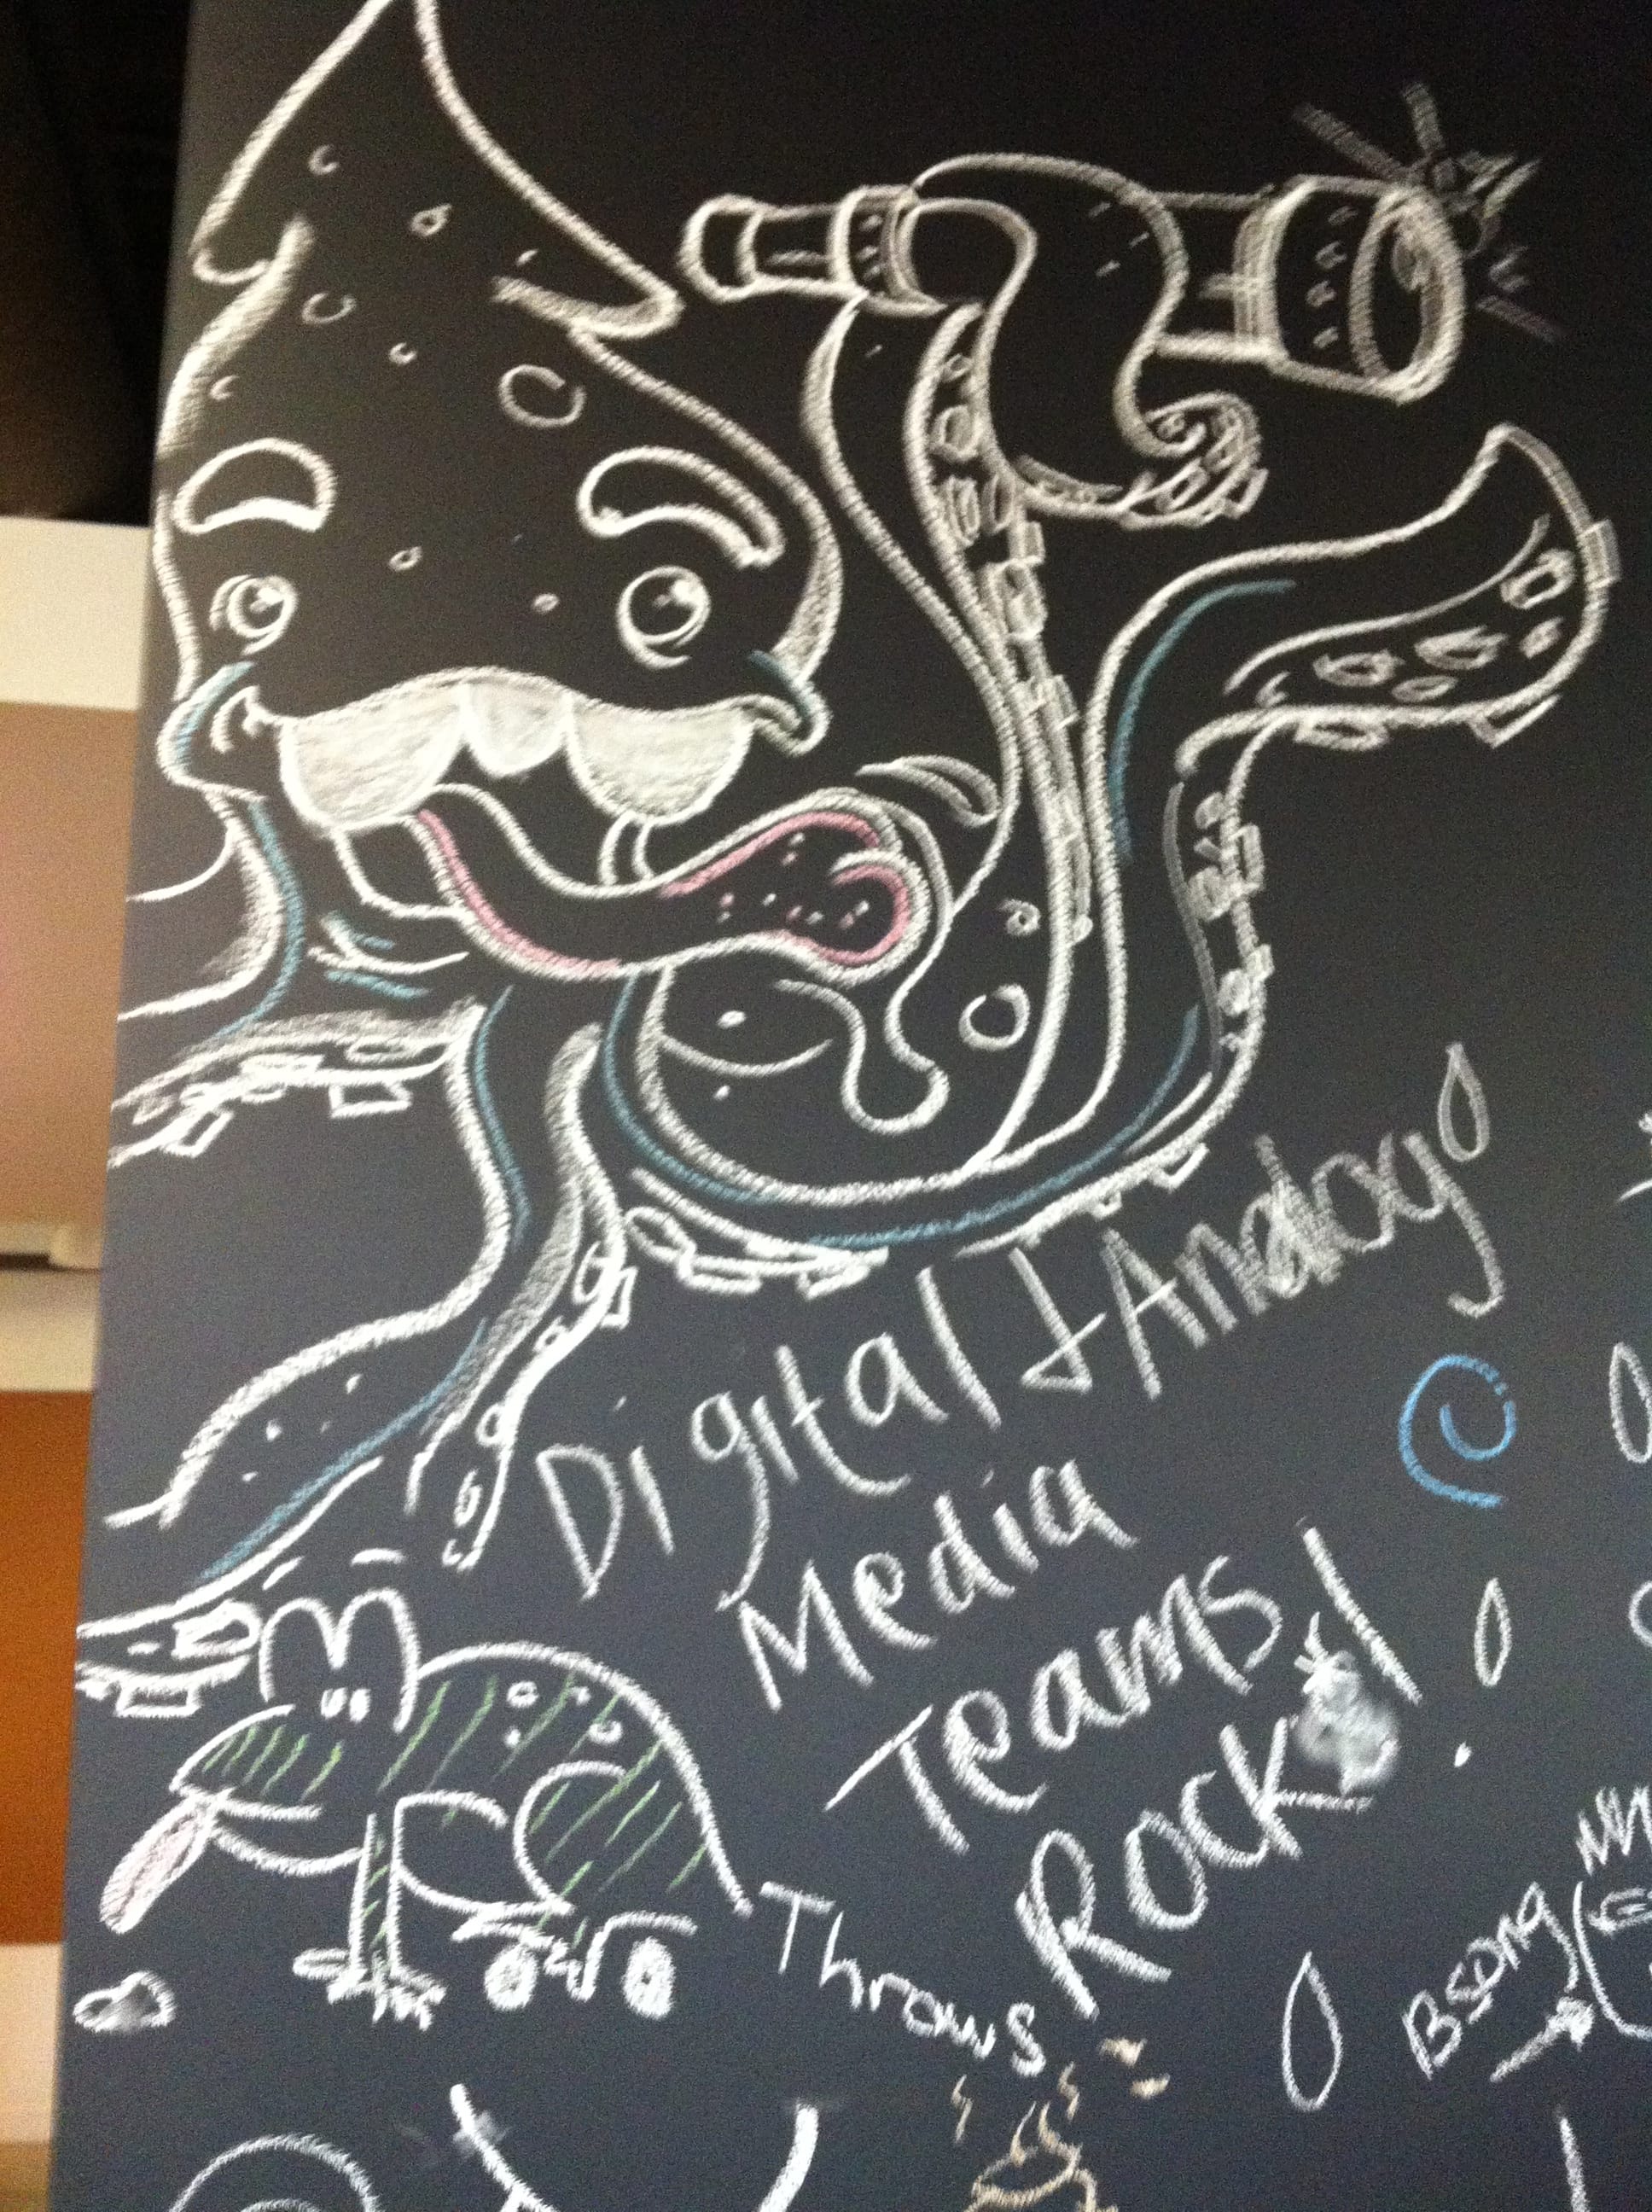 Digital + Analog
Media
Teams
Rock!
Throws
Bsong